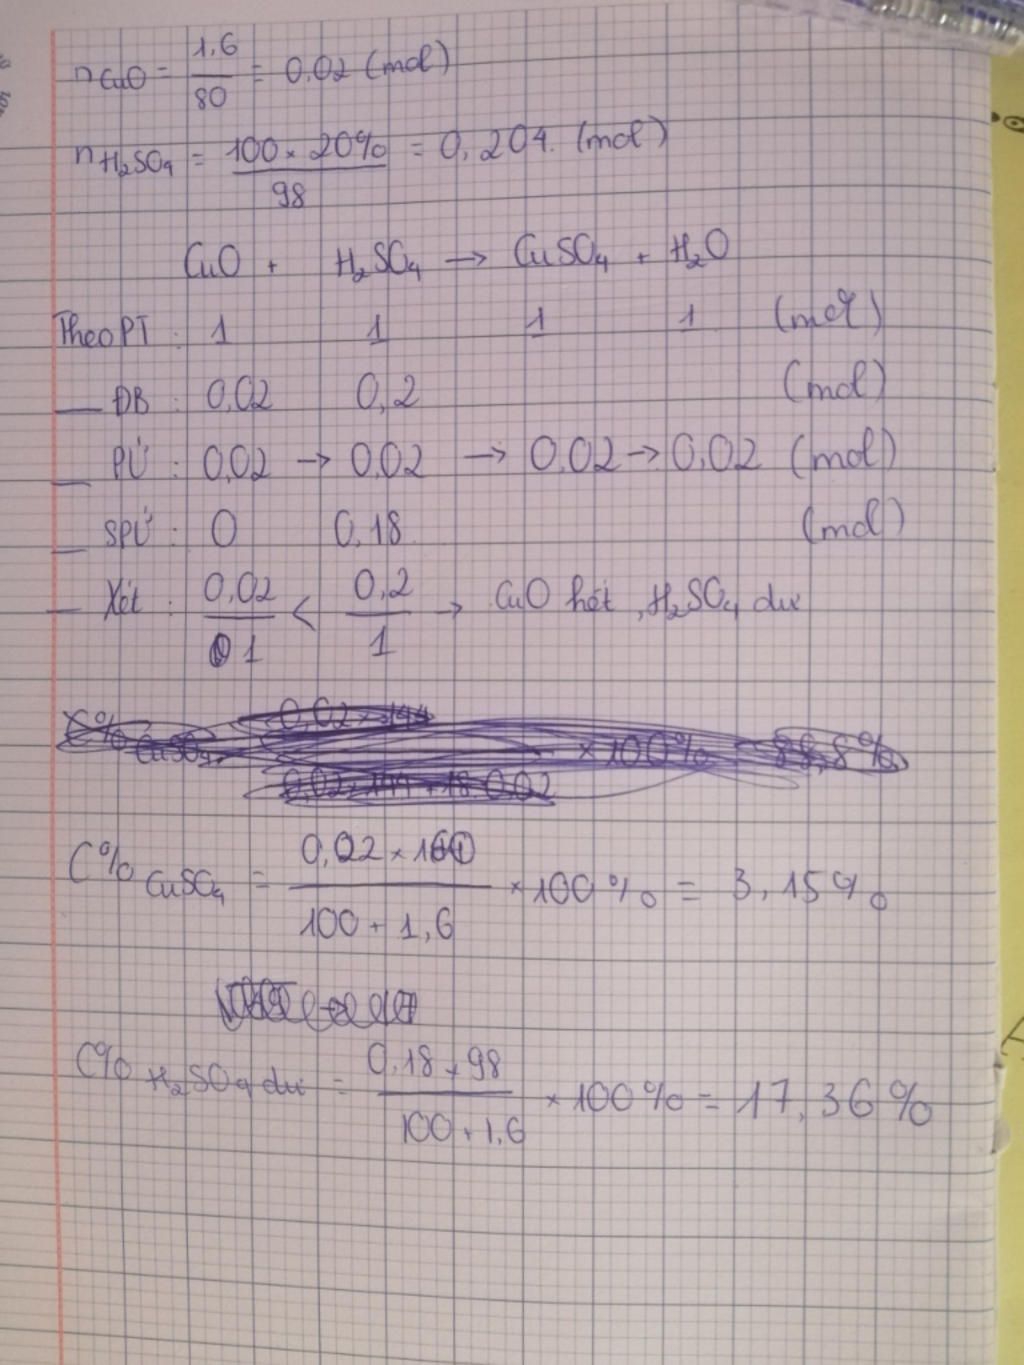 nCuO = 1,6 / 80 = 0,02 (mol)
nH₂SO₄ = 100 × 20% / 98 = 0,204. (mol)
CuO + H₂SO₄ → CuSO₄ + H₂O
Theo PT : 1 1 1 1 (mol)
__ ĐB : 0,02 0,2 (mol)
__ PƯ : 0,02 → 0,02 → 0,02 → 0,02 (mol)
__ SPƯ : 0 0,18 (mol)
__ Xét : 0,02 / 1 < 0,2 / 1 → CuO hết, H₂SO₄ dư
C% CuSO₄ = 0,02 × 160 / 100 + 1,6 × 100% = 3,15%
C% H₂SO₄ dư = 0,18 × 98 / 100 + 1,6 × 100% = 17,36%